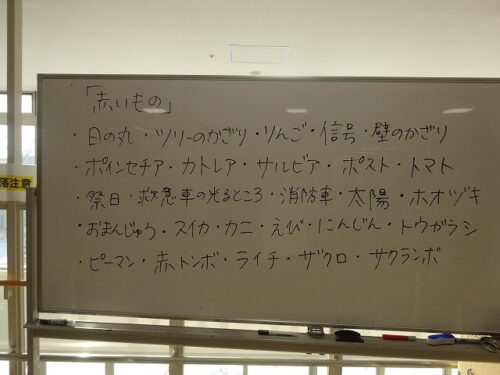 「赤いもの」
・日の丸・ツリーのかざり・りんご・信号・壁のかざり
・ポインセチア・カトレア・サルビア・ポスト・トマト
・祭日・救急車の光るところ・消防車・太陽・ホオヅキ
・おまんじゅう・スイカ・カニ・えび・にんじん・トウガラシ
・ピーマン・赤トンボ・ライチ・ザクロ・サクランボ
落注意